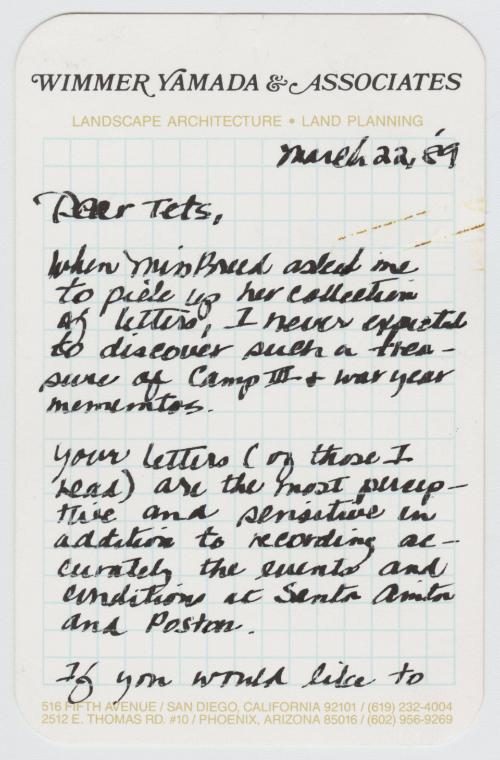 WIMMER YAMADA & ASSOCIATES
LANDSCAPE ARCHITECTURE • LAND PLANNING
March 22, '89
Dear Tets,
When Miss Breed asked me
to pick up her collection
of letters, I never expected
to discover such a trea-
sure of Camp III & war year
mementos.
Your letters (of those I
read) are the most percep-
tive and sensitive in
addition to recording ac-
curately the events and
conditions at Santa Anita
and Poston.
If you would like to
516 FIFTH AVENUE / SAN DIEGO, CALIFORNIA 92101 / (619) 232-4004
2512 E. THOMAS RD. #10 / PHOENIX, ARIZONA 85016 / (602) 956-9269